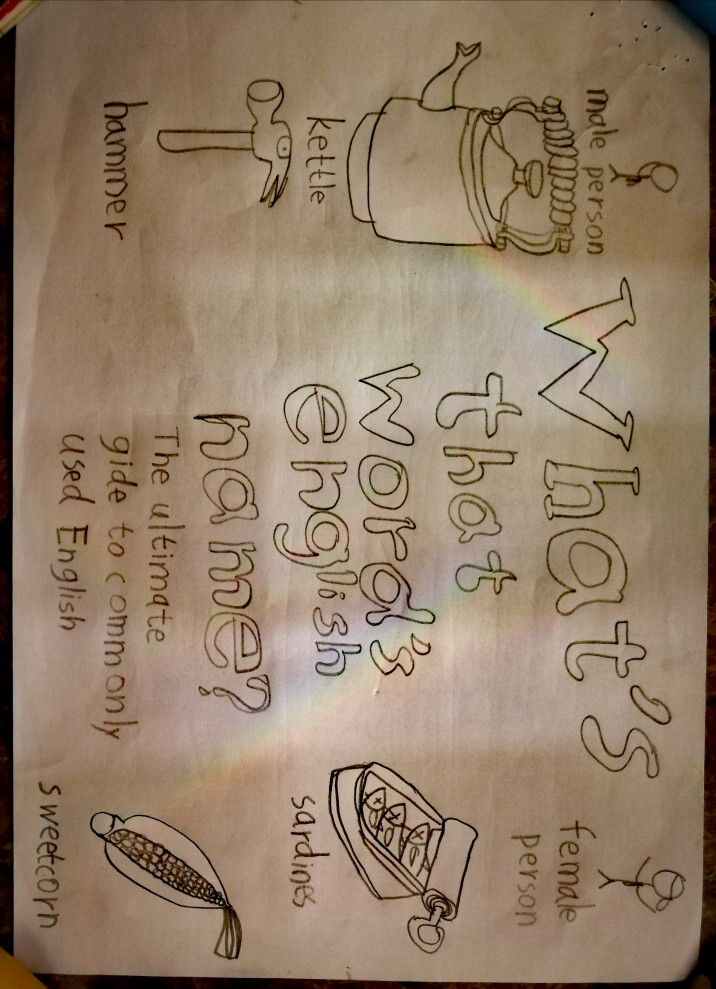 What's
that
word's
english
name?
The ultimate
gide to commonly
used English
male person
kettle
hammer
female
person
sardines
sweetcorn